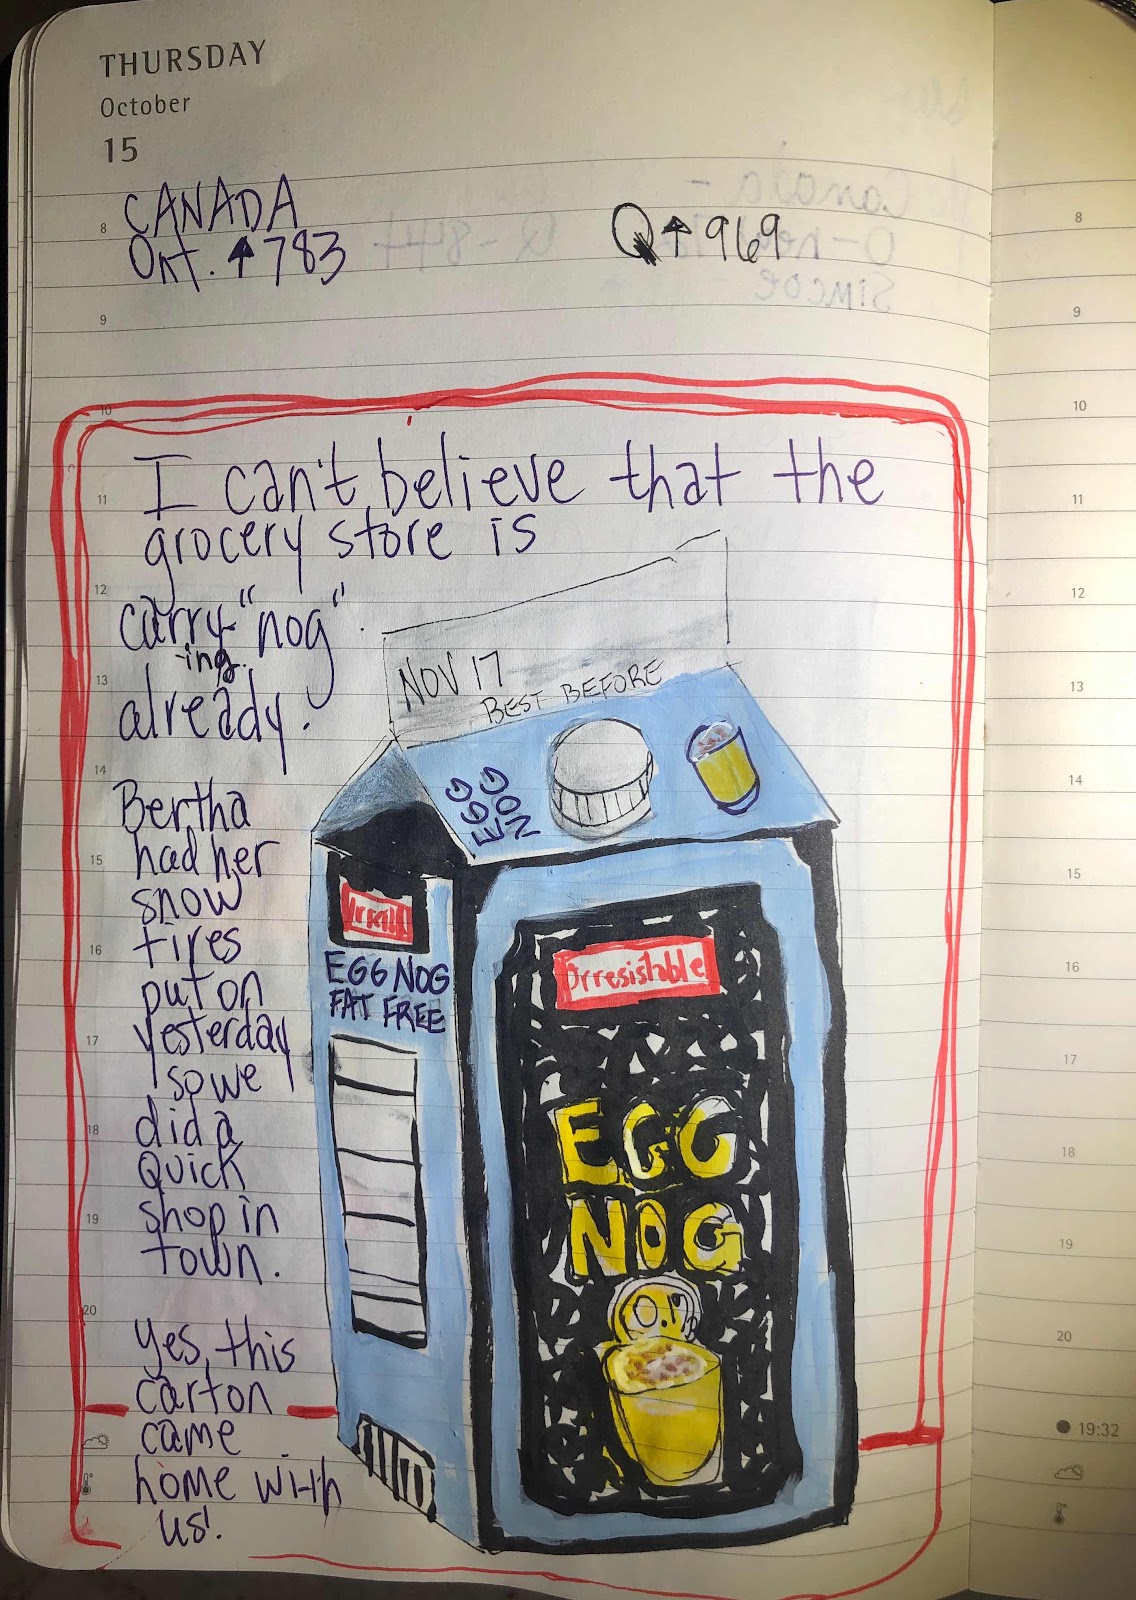 THURSDAY
October
15
CANADA
Ont. ↑783
Q↑969
8
9
10
I can't believe that the
11
grocery store is
12
carry "nog".
-ing
13
already.
NOV 17
BEST BEFORE
EGG
NOG
14
Bertha
15
had her
snow
16
tires
put on
17
yesterday
so we
18
did a
quick
19
shop in
town.
20
Yes, this
carton
came
home with
us!
EGG NOG
FAT FREE
Irresistable
EGG
NOG
8
9
10
11
12
13
14
15
16
17
18
19
20
19:32
Canada -
Simcoe